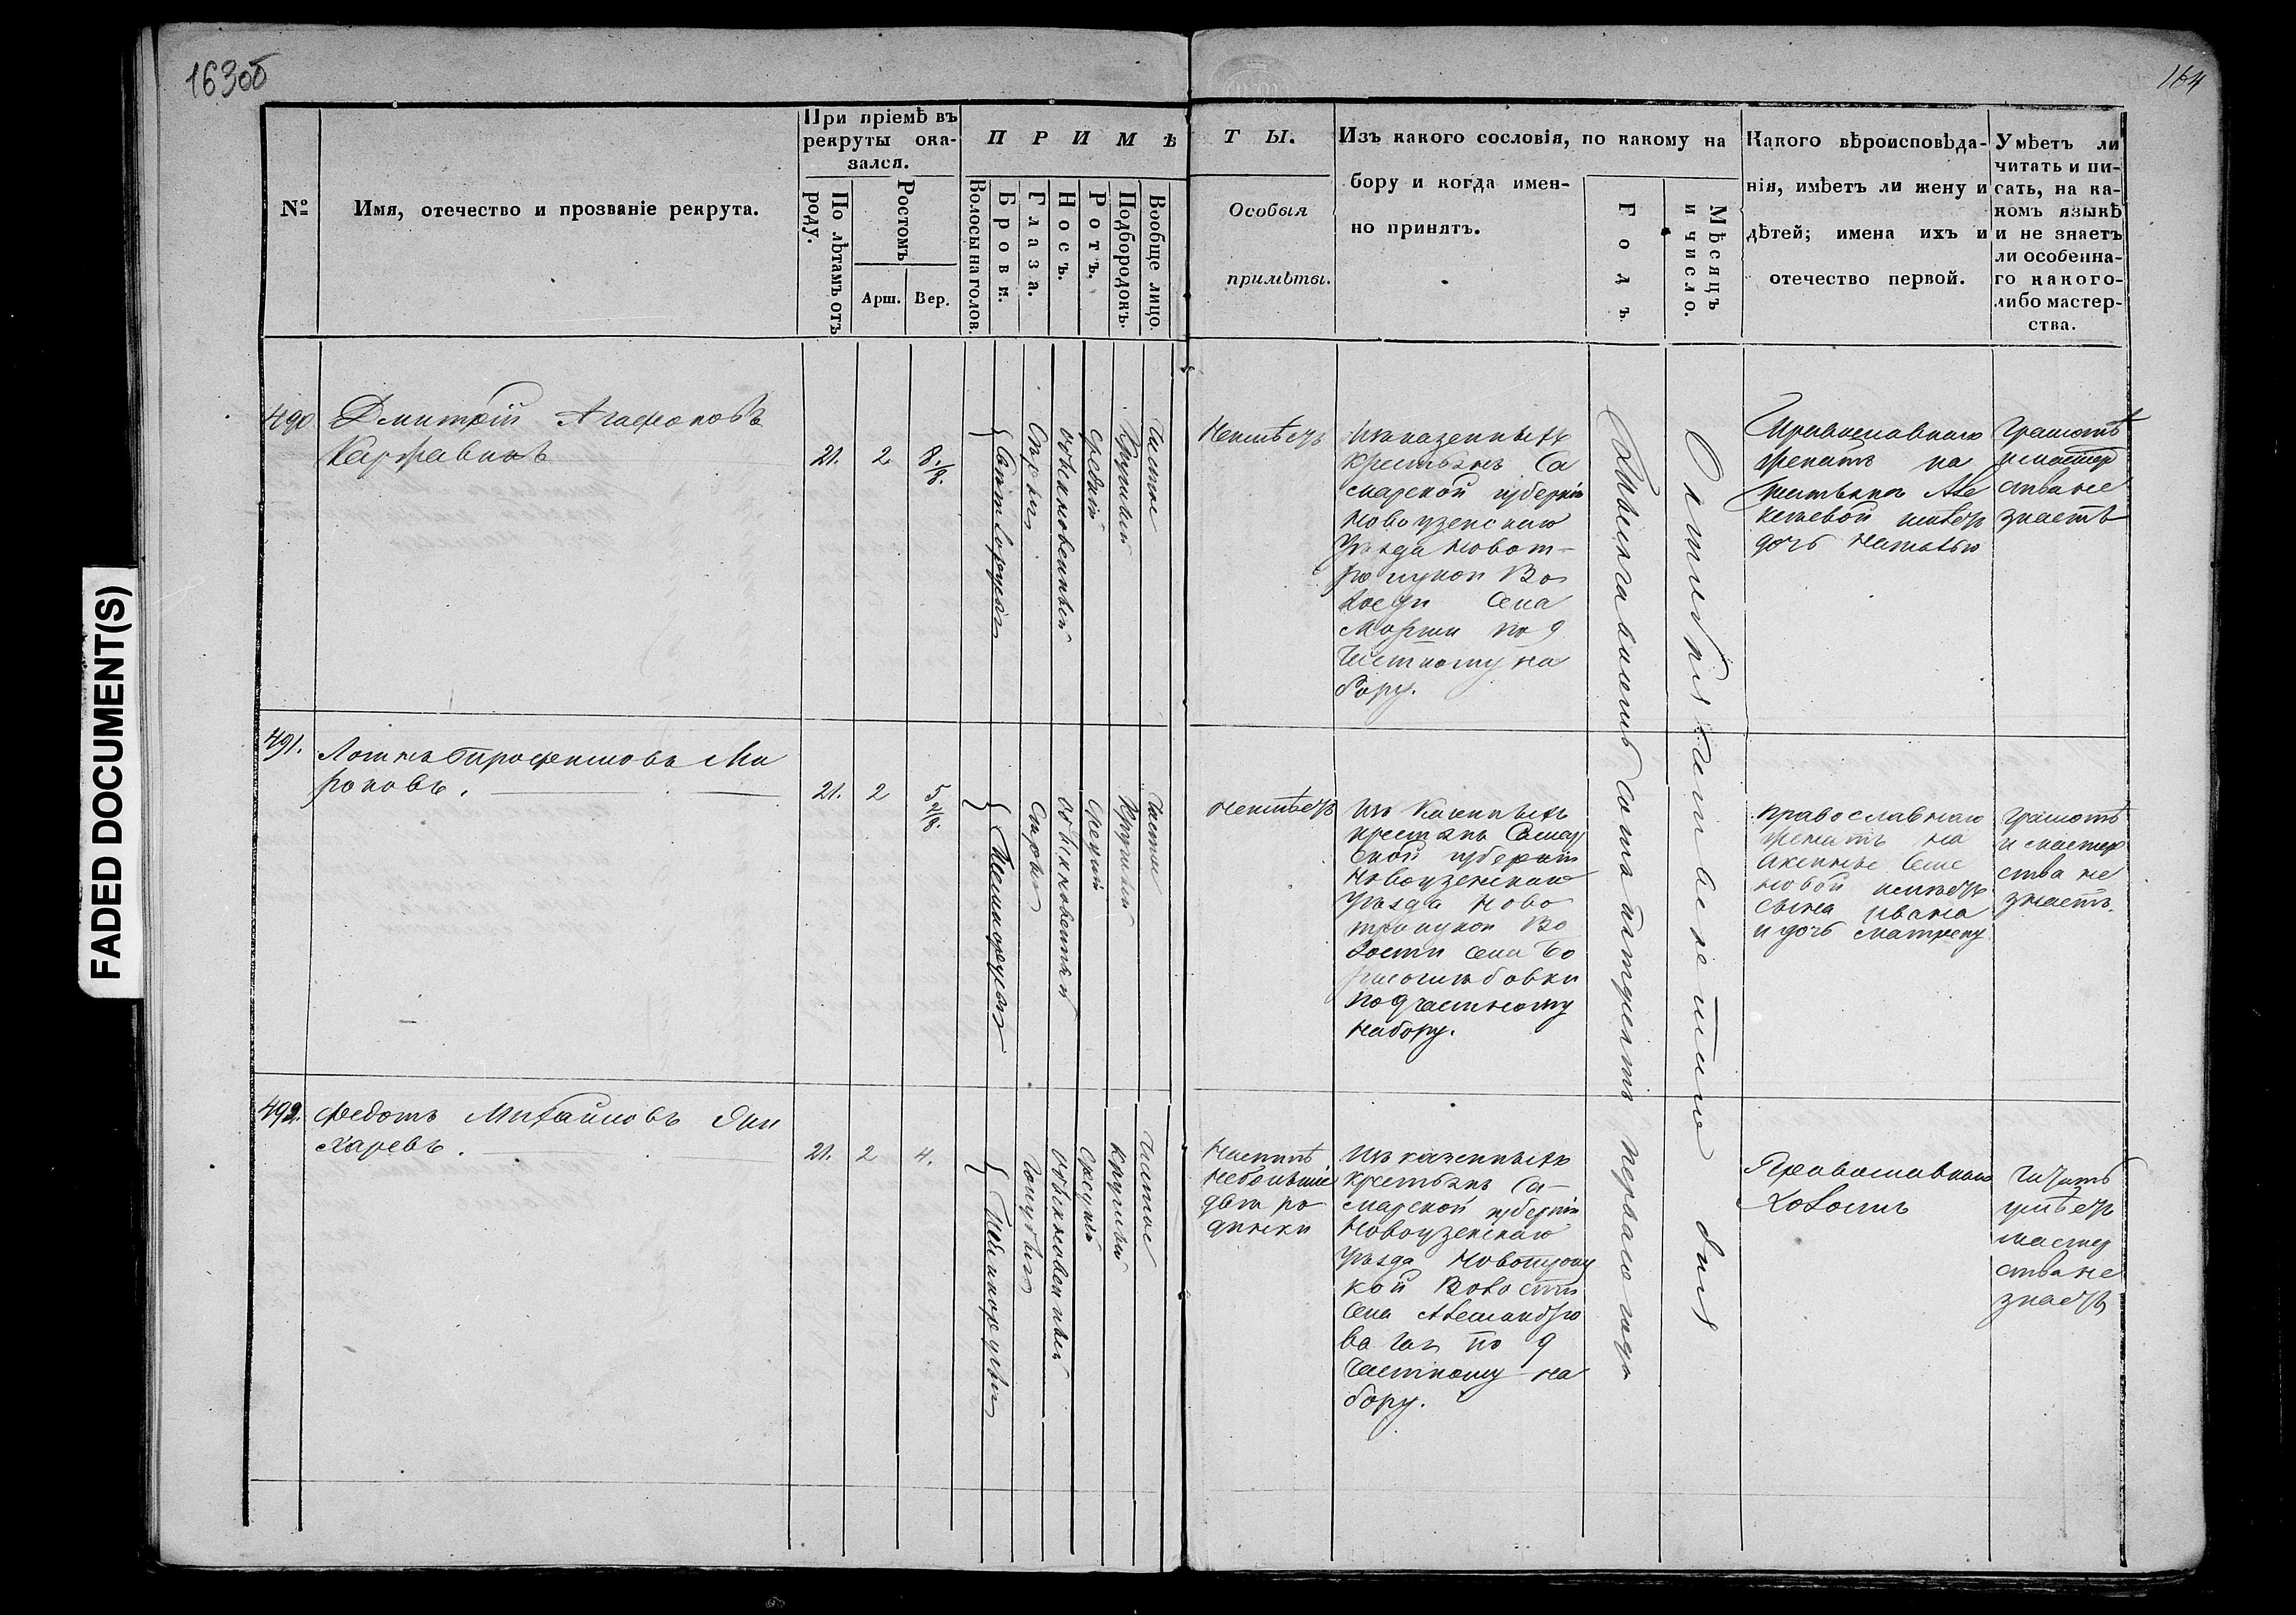 163об
164
FADED DOCUMENT(S)
№
Имя, отечество и прозваніе рекрута.
При пріемѣ въ
рекруты ока-
зался.
По лѣтамъ отъ
роду.
Ростомъ
Арш.
Вер.
ПРИМѢ
Волосы на голов.
Брови.
Глаза.
Носъ.
Ротъ,
Подбородокъ.
Вообще лицо.
ТЫ.
Особыя
примѣты.
Изъ какого сословія, по какому на
бору и когда имен-
но принятъ.
Годъ.
Мѣсяцъ
и число.
Какого вѣроисповѣда-
нія, имѣетъ ли жену и
дѣтей; имена ихъ и
отечество первой.
Умѣетъ ли
читать и пи-
сать, на ка-
комъ языкѣ
и не знаетъ
ли особенна-
го какого-
либо мастер-
ства.
490
Дмитрій Агафоновъ
21.
2
8 1/8.
Свѣтлорусыя
Сѣрыя
обыкновенный
средній
Круглый
Чистое
Неимѣетъ
Изъ казенныхъ
крестьянъ Са
марской губерніи
Новоузенскаго
Уѣзда Новот-
роицкой Во
лости Села
по 9
Частному на
бору.
Православнаго
женатъ на
имѣетъ
дочь Наталью
Грамотѣ
и мастер
ства не
знаетъ
491.
21.
2
5 4/8.
Темнорусыя
Сѣрыя
обыкновенный
Средній
Круглый
Чистое
неимѣетъ
Изъ Казенныхъ
крестьянъ Самар
ской губерніи
Новоузенскаго
Уѣзда Ново
троицкой Во
лости села Бо
рисоглѣбовки
по 9 частному
набору.
Православнаго
женатъ на
Аксинье Семе
новой имѣетъ
сына Ивана
и дочь Матрену
грамотѣ
и мастер
ства не
знаетъ.
492.
Федотъ Михайловъ
21.
2
4.
Темнорусыя
Голубыя
обыкновенный
средній
круглый
Чистое
небольшіе
двѣ ро-
динки
Изъ казенныхъ
Крестьянъ Са-
марской губерніи
Новоузенскаго
Уѣзда Новотроиц
кой Волости
Села Александро
ва Гая по 9
Частному на
бору.
Православнаго
Холостъ
Читать
умѣетъ
мастер
ства не
знаетъ
Тысяча восемь сотъ пятьдесятъ перваго года
Октября
дня